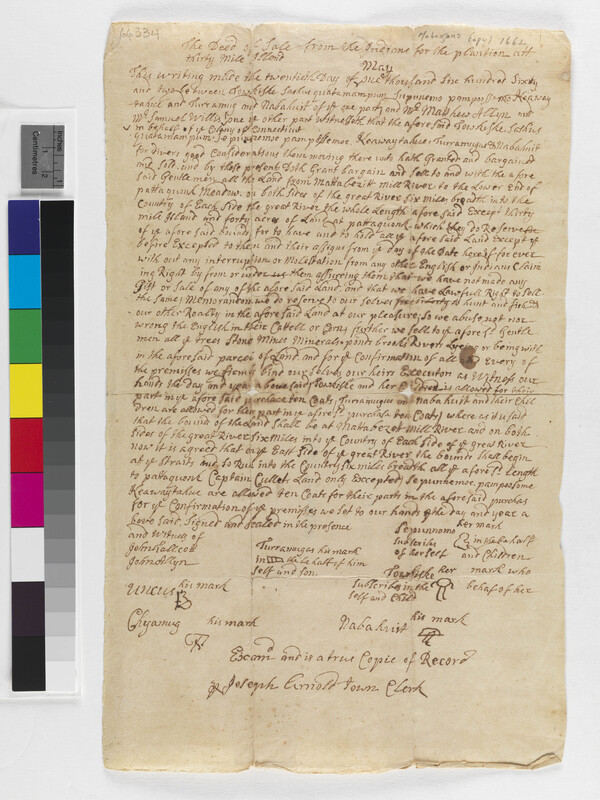 The Deed of Sale from the Indians for the plantion att
thirty Mile Island
May
This writing made the twentieth Day of one thousand Six hundred Sixty
and two between Towkishe Sachus quatamampum Sepunemo pampossme Keaway
tahue and Turramug and Nabahuit of ye one part and Mr Mathew Allyn and
Mr Samuel Willis one ye other part Witnesseth that the aforesaid Towkishe Sathus
in behalf of ye Colony of Connecticut
quatamampum Sepunnemoe pampossemoe, Keawaytahue, Turramugus & Nabahuit
for divers good Considerations them moving there unto hath Granted and bargained
and Sold, and by these present Doth Grant bargain and Sell to and with the afore
said Gentlemen all the Land from Matabezitt mill River to the Lower End of
pattaquonk Meadow on both Sides of the great River Six miles breadth into the
Country of Each Side the great River the whole Length aforesaid Except thirty
mile Island and forty acres of Land at pattaquonk which they do Reserve out
of ye afore said bounds for to have and to hold all ye afore said Land Except ye
before Excepted to them and their assigns from ye day of the Date hereof for ever
with out any interruption or Molestation from any other English or Indians Claim
ing Right by from or under us them assuering them that we have not made any
Gift or Sale of any of the afore said Land and that we have Lawfull Right to Sell
the Same; Memorandem we do reserve to our Selves free liberty to hunt and fish
our other Royalty in the afore said Land at our pleasure, so we abuse not nor
wrong the English in their Cattell or Corn; further we Sell to ye afore Sd Gentle
men all ye trees Stone Mines Minerals ponds brooks Rivers Lyeing or being with
in the aforesaid parcel of Land and for ye Confirmation of all and Every of
the premisses we firmly bind our Selves our heirs Executors as Witness our
hands the Day and year above said; Towkishe and her Children is allowed for their
part in ye afore Said purchase ten Coats; Turramugus and Nabahuist and their Chil
dren are allowed for their part in ye afore Sd purchase ten Coats; where as it is said
that the bound of the Land Shall be at Matabezet Mill River and on both
Sides of the great River Six Miles into ye Country of Each Side of ye great River
now it is agreed that one East Side of ye great River the bounds Shall begin
at ye Straits and So Run into the Country Six miles breadth all ye afore Sd Length
to pattaquonk Captain Cullets Land only Excepted; Sepunnemoe, pampossme
Keawaytahue are allowed ten Coats for their parts in the aforesaid purchas
for ye Confirmation of ye premisses we set to our hands the day and year a
bove said, Signed and Sealed in the presence
and Witness of
John Tallcot
John Allyn
Turramuges his mark
in the behalf of him
self and son.
Sepunnomo her mark
Subscribs in the behalf
of her Self and Children
Towkishe her mark who
Subscribes in the behaf of her
Self and Child
Uncus his mark
Chyamug his mark
Nabahuist his mark
Examd and is a true Copie of Record
pr Joseph Arnold Town Clerk